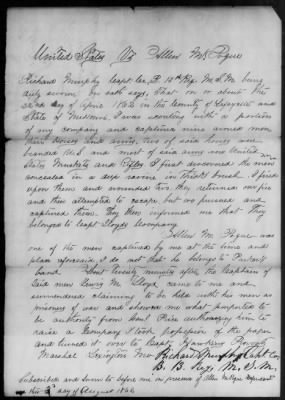 United States Vs Allen M. Pogue
Richard Murphy Capt Co. B 12th Reg M.S.M. being
duly sworn on oath says, That on or about the
22nd day of April 1862 in the County of Lafayette and
State of Missouri, I was scouting with a portion
of my company and captured nine armed men
their horses and arms, two of said horses were
branded U.S. and most of said arms were United
States Muskets and Rifles I first discovered the men
concealed in a deep ravine in thick brush. I fired
upon them and wounded two, they returned our fire
and then attempted to escape but we pursued and
captured them. they then informed me that they
belonged to Capt Lloyds Company
Allen M. Pogue was
one of the men captured by me at the time and
place aforesaid. I do not that he belongs to
band. twenty minutes after the Captain of
said men Lewis M. Lloyd came to me and
surrendered claiming to be held with the men as
prisoners of war and showed me what purported to
be authority from Genl Price authorizing him to
raise a Company I took possession of the paper
and turned it over to Capt Hawkins Provost
Marshal Lexington Mo Richard Murphy Capt Co.
B Reg. M.S.M.
Subscribed and sworn to before me in presence of Allen M Pogue
this day of August 1862